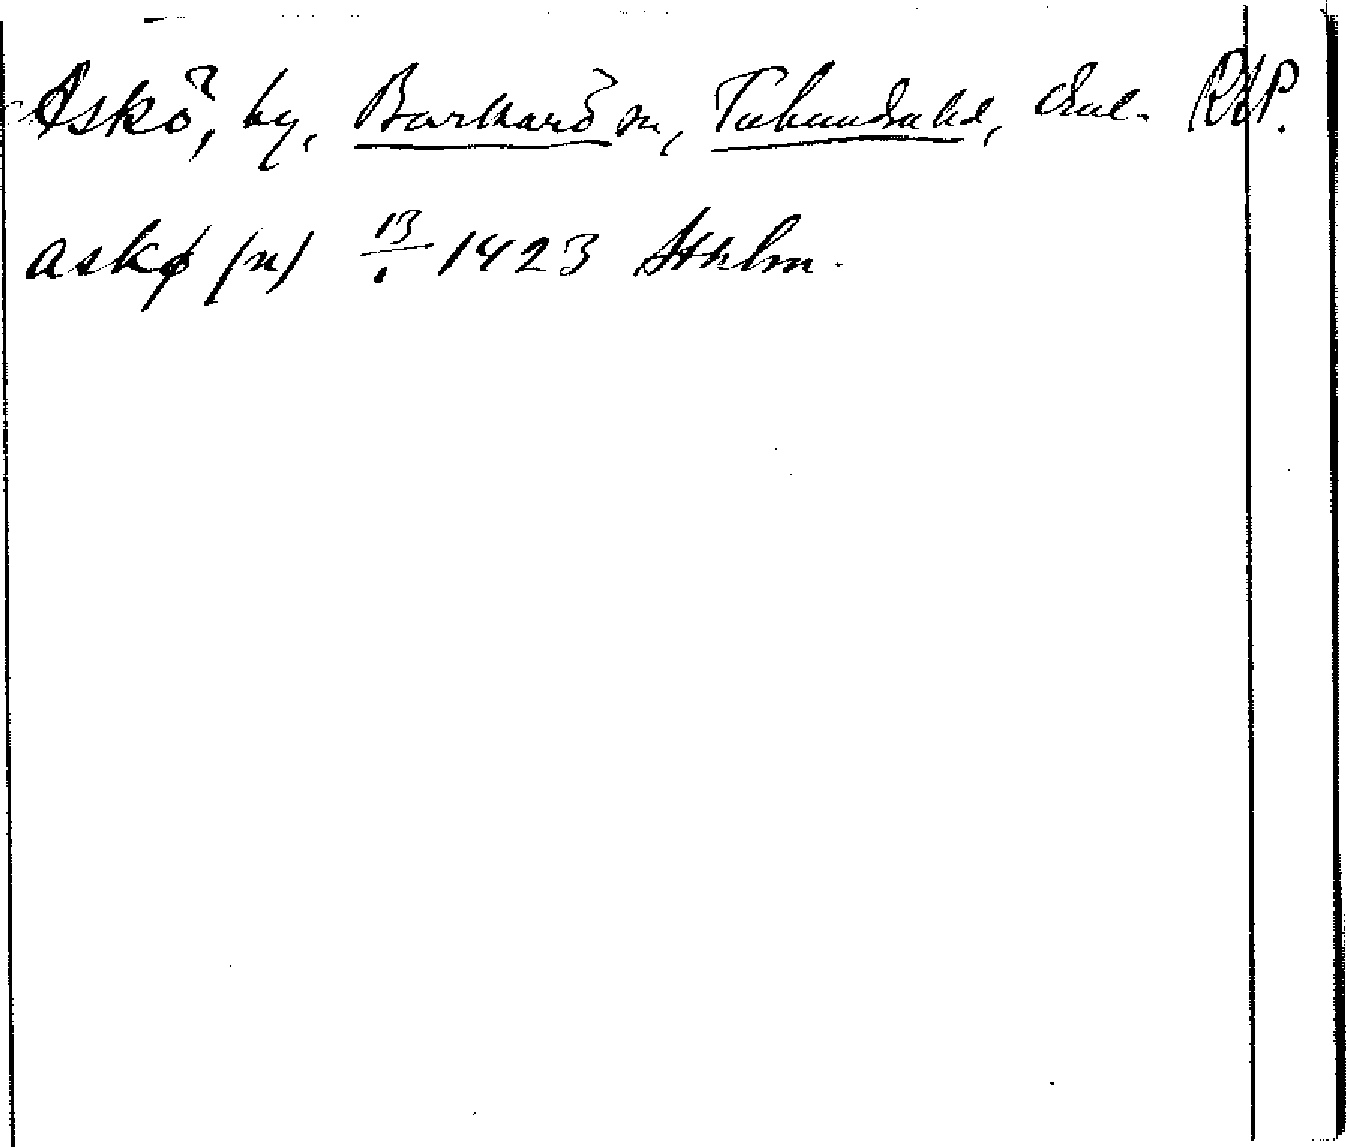 Askö, by, Barkarö sn, Tuhundra hd, RAP.
askø (n) 13/1 1423 Sthlm.